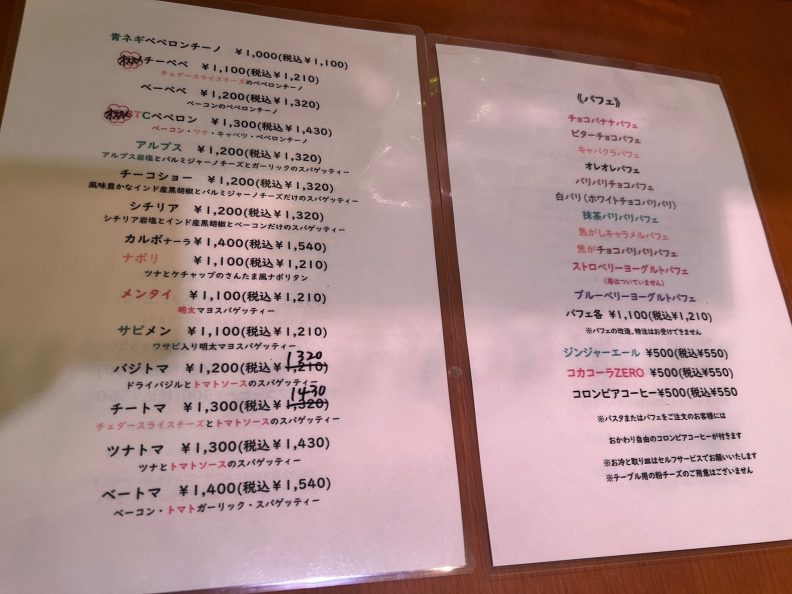 青ネギペペロンチーノ ¥1,000(税込¥1,100)
チーペペ ¥1,100(税込¥1,210)
チェダースライスチーズのペペロンチーノ
ベーペペ ¥1,200(税込¥1,320)
ベーコンのペペロンチーノ
STCペペロン ¥1,300(税込¥1,430)
ベーコン・ツナ・キャベツ・ペペロンチーノ
アルプス ¥1,200(税込¥1,320)
アルプス岩塩とパルミジャーノチーズとガーリックのスパゲッティー
チーコショー ¥1,200(税込¥1,320)
風味豊かなインド産黒胡椒とパルミジャーノチーズだけのスパゲッティー
シチリア ¥1,200(税込¥1,320)
シチリア岩塩とインド産黒胡椒とベーコンだけのスパゲッティー
カルボナーラ ¥1,400(税込¥1,540)
ナポリ ¥1,100(税込¥1,210)
ツナとケチャップのさんたま風ナポリタン
メンタイ ¥1,100(税込¥1,210)
明太マヨスパゲッティー
サビメン ¥1,100(税込¥1,210)
ワサビ入り明太マヨスパゲッティー
1320
バジトマ ¥1,200(税込¥1,210)
ドライバジルとトマトソースのスパゲッティー
1430
チートマ ¥1,300(税込¥1,320)
チェダースライスチーズとトマトソースのスパゲッティー
ツナトマ ¥1,300(税込¥1,430)
ツナとトマトソースのスパゲッティー
ベートマ ¥1,400(税込¥1,540)
ベーコン・トマトガーリック・スパゲッティー
《パフェ》
チョコバナナパフェ
ビターチョコパフェ
キャバクラパフェ
オレオレパフェ
パリパリチョコパフェ
白パリ(ホワイトチョコパリパリ)
抹茶パリパリパフェ
焦がしキャラメルパフェ
焦がチョコパリパリパフェ
ストロベリーヨーグルトパフェ
(苺はついていません)
ブルーベリーヨーグルトパフェ
パフェ各 ¥1,100(税込¥1,210)
※パフェの改造、特注はお受けできません
ジンジャーエール ¥500(税込¥550)
コカコーラZERO ¥500(税込¥550)
コロンビアコーヒー¥500(税込¥550
※パスタまたはパフェをご注文のお客様には
おかわり自由のコロンビアコーヒーが付きます
※お冷と取り皿はセルフサービスでお願いいたします
※テーブル用の粉チーズのご用意はございません